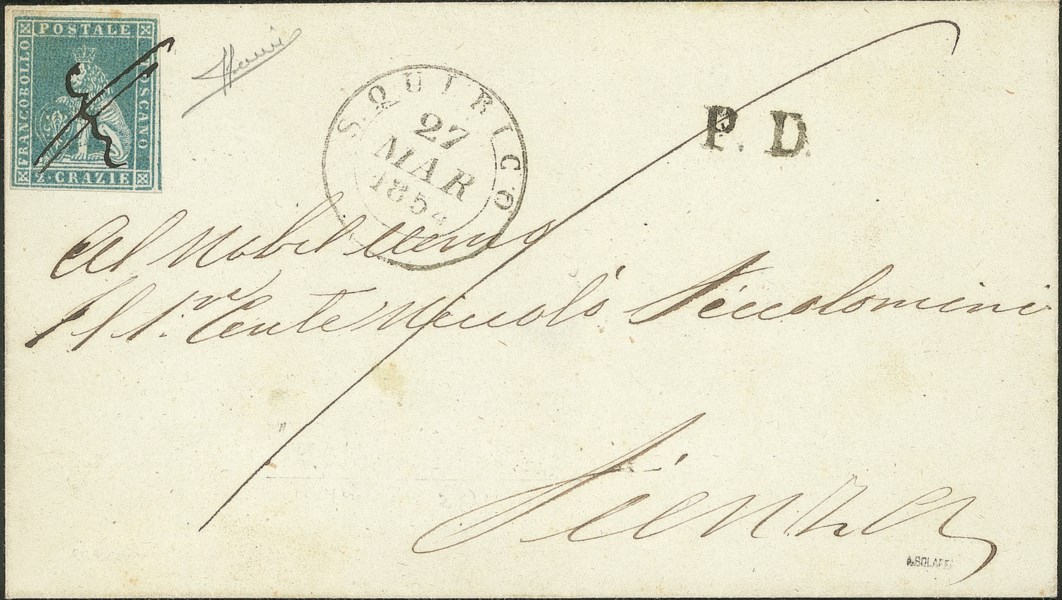 POSTALE
FRANCOBOLLO
TOSCANO
2·CRAZIE
S. QUIRICO
27
MAR
1854
P. D.
Al Nobil Uomo
Il Sr. Conte Niccolò Piccolomini
Pienza